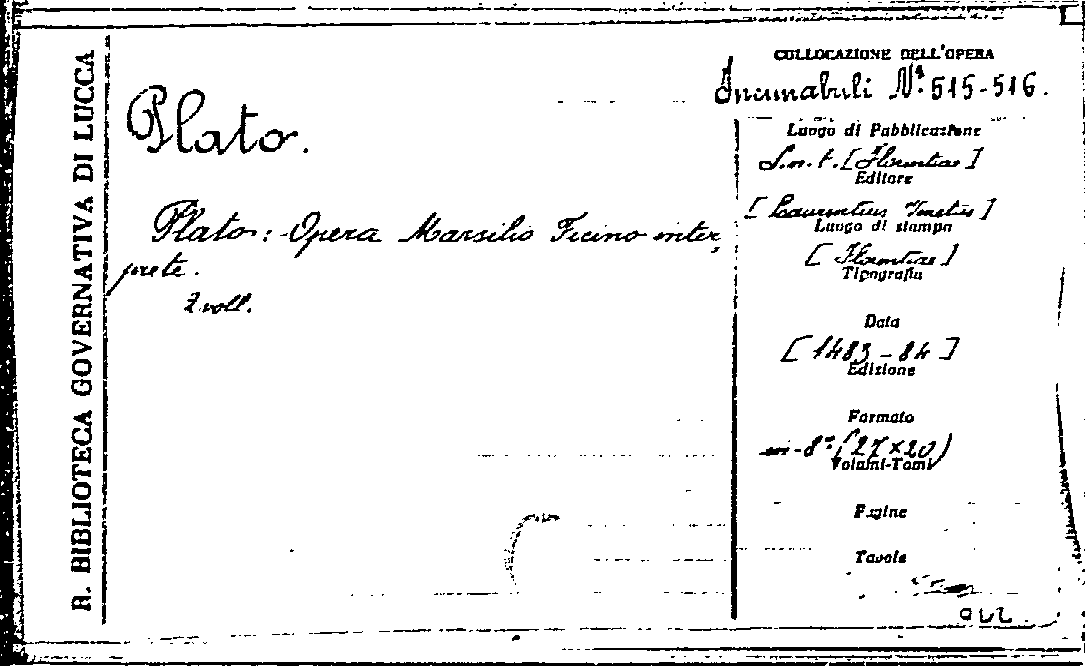 R. BIBLIOTECA GOVERNATIVA DI LUCCA
Plato.
Plato: Opera Marsilio Ficino inter,
prete.
2 voll.
COLLOCAZIONE DELL'OPERA
Incunabuli Ni. 515-516.
Luogo di Pubblicazione
S.n.t. [Florentiae]
Editore
[Laurentius Venetus]
Luogo di stampa
[Florentiae]
Tipografia
Data
[1483-84]
Edizione
Formato
in-8º (27×20)
Volumi-Tomi
Pagine
Tavole